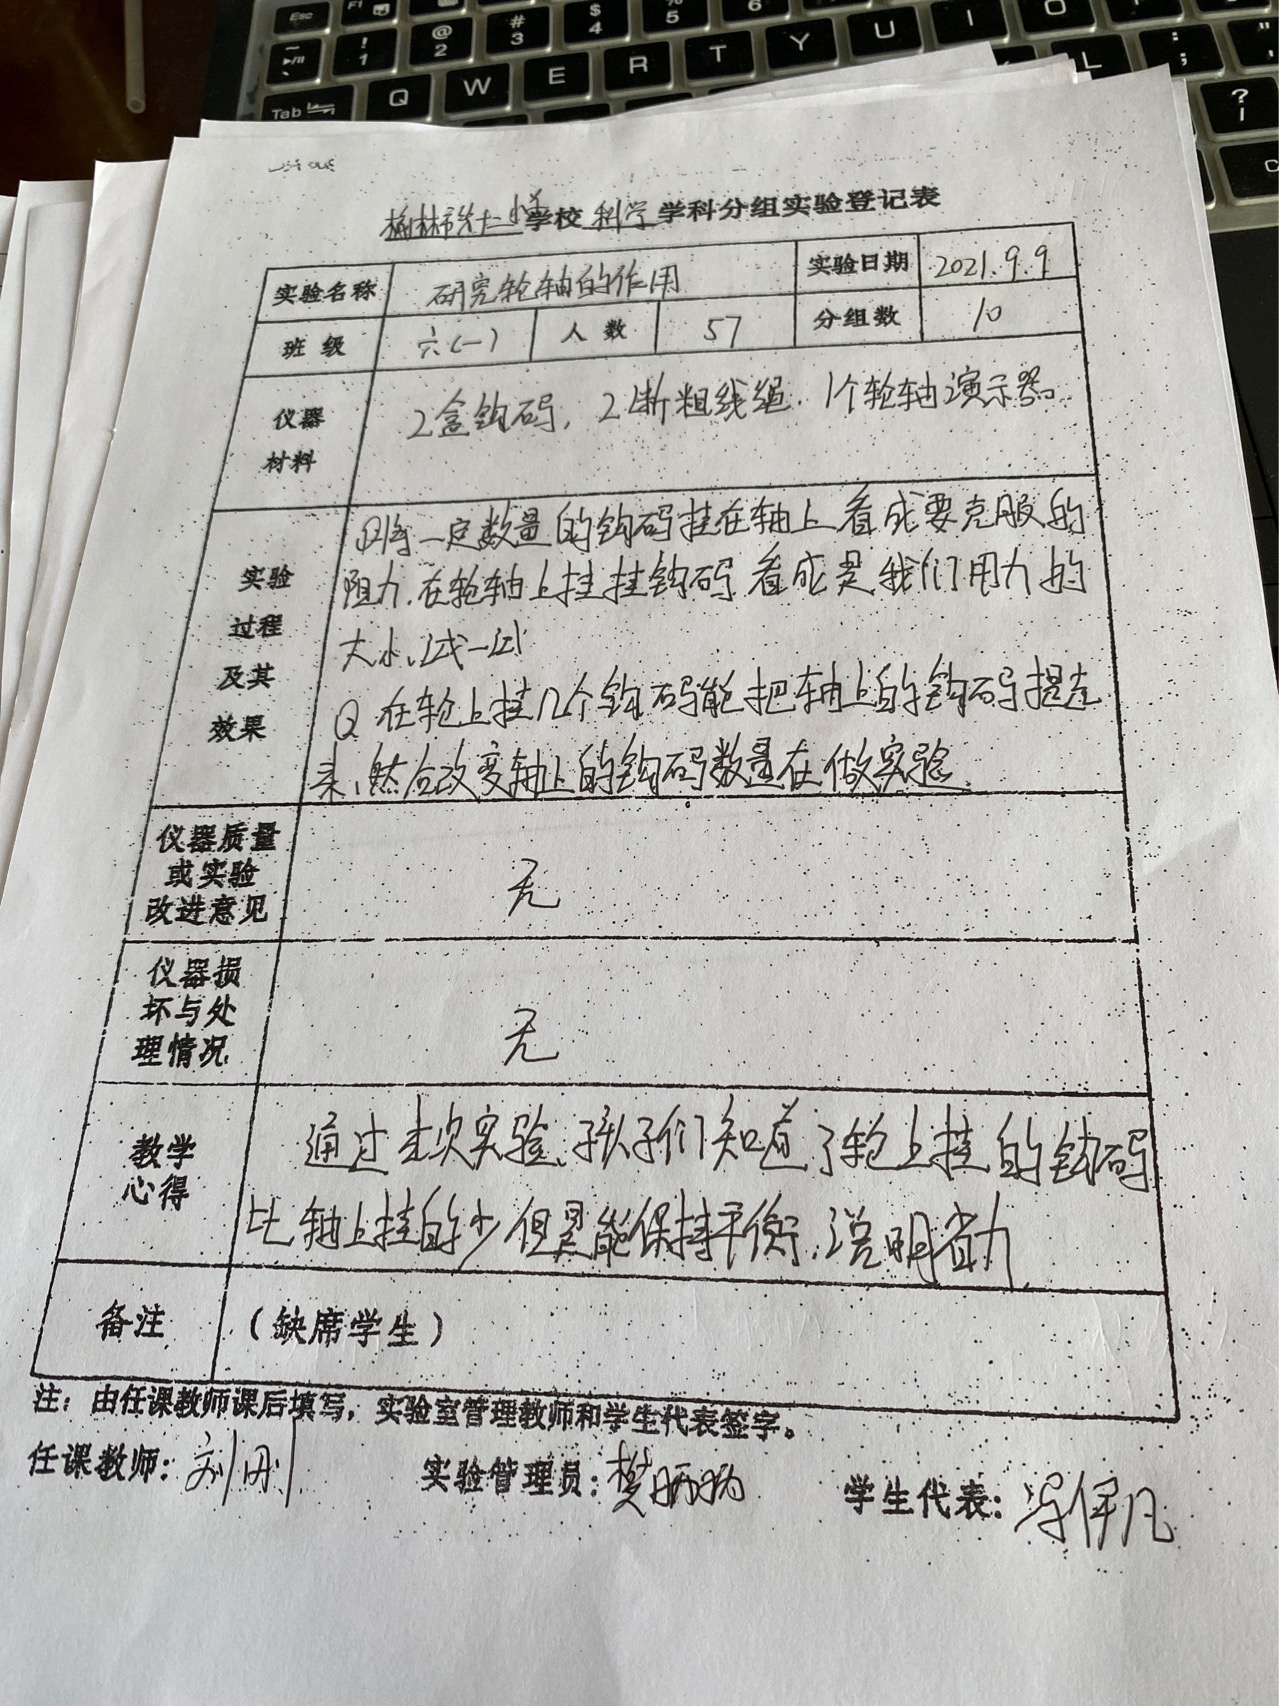 榆林市第十二小学学校 科学 学科分组实验登记表
实验名称 研究轮轴的作用 实验日期 2021.9.9
班级 六(一) 人数 57 分组数 10
仪器材料 2盒钩码，2断粗线绳.1个轮轴演示器。
实验过程及其效果
①将一定数量的钩码挂在轴上看成要克服的
阻力.在轮轴上挂挂钩码看成是我们用力的
大小、试一试
② 在轮上挂几个钩码能把轴上的钩码提起
来、然后改变轴上的钩码数量在做实验.
仪器质量或实验改进意见 无
仪器损坏与处理情况 无
教学心得
通过本次实验、孩子们知道了轮上挂的钩码
比轴上挂的少但是能保持平衡.说明省力
备注 (缺席学生)
注：由任课教师课后填写，实验室管理教师和学生代表签字。
任课教师：刘刚 实验管理员：樊 学生代表：冯伊凡
Esc F1 4 5 6
! 1 @ 2 # 3 $ 4
Tab Q W E R T Y U I O
L : ; " ? /